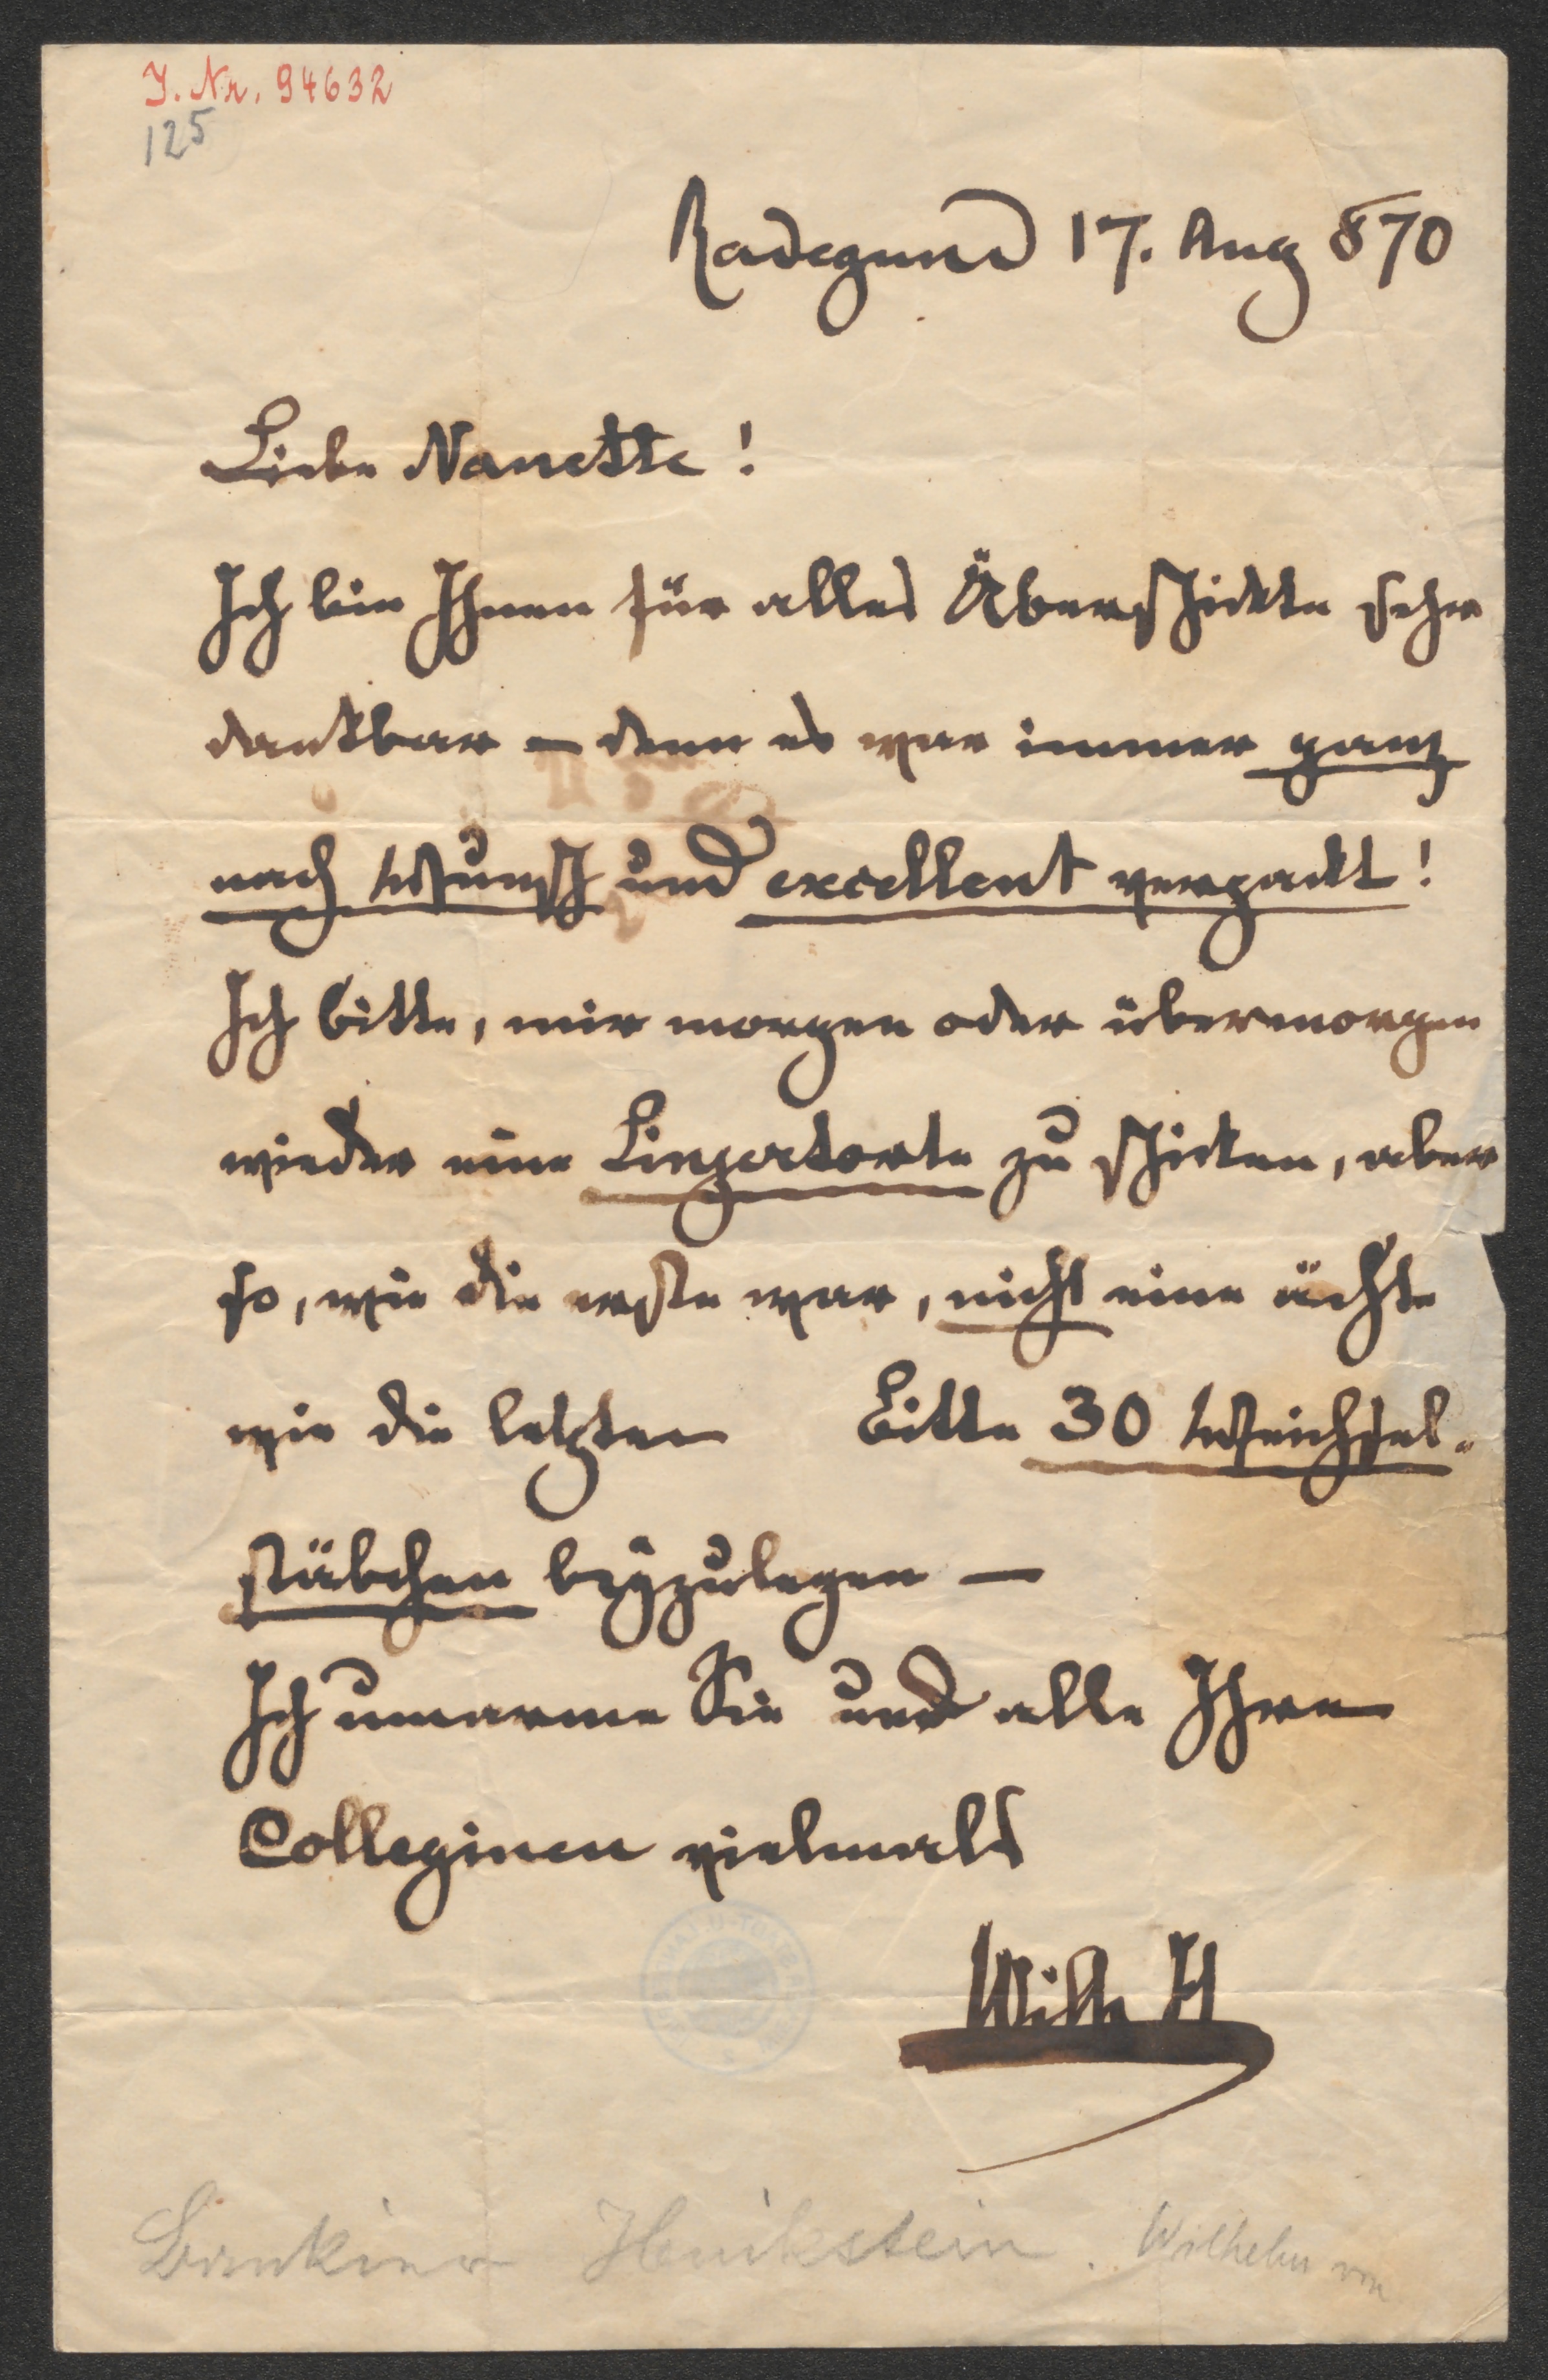 J. Nr. 94632
125
Radegund 17. Aug 870
Liebe Nanette!
Ich bin Ihnen für alles Überschickte sehr
dankbar – denn es war immer ganz
nach Wunsch und excellent verpackt!
Ich bitte, mir morgen oder übermorgen
wieder eine Linzertorte zu schicken, aber
so, wie die erste war, nicht eine ächte
wie die letzten Bitte 30 Weichsel-
stäbchen beÿzulegen –
Ich umarme Sie und alle Ihre
Colleginen vielmals
Wilh H
Bankier Henikstein. Wilhelm von